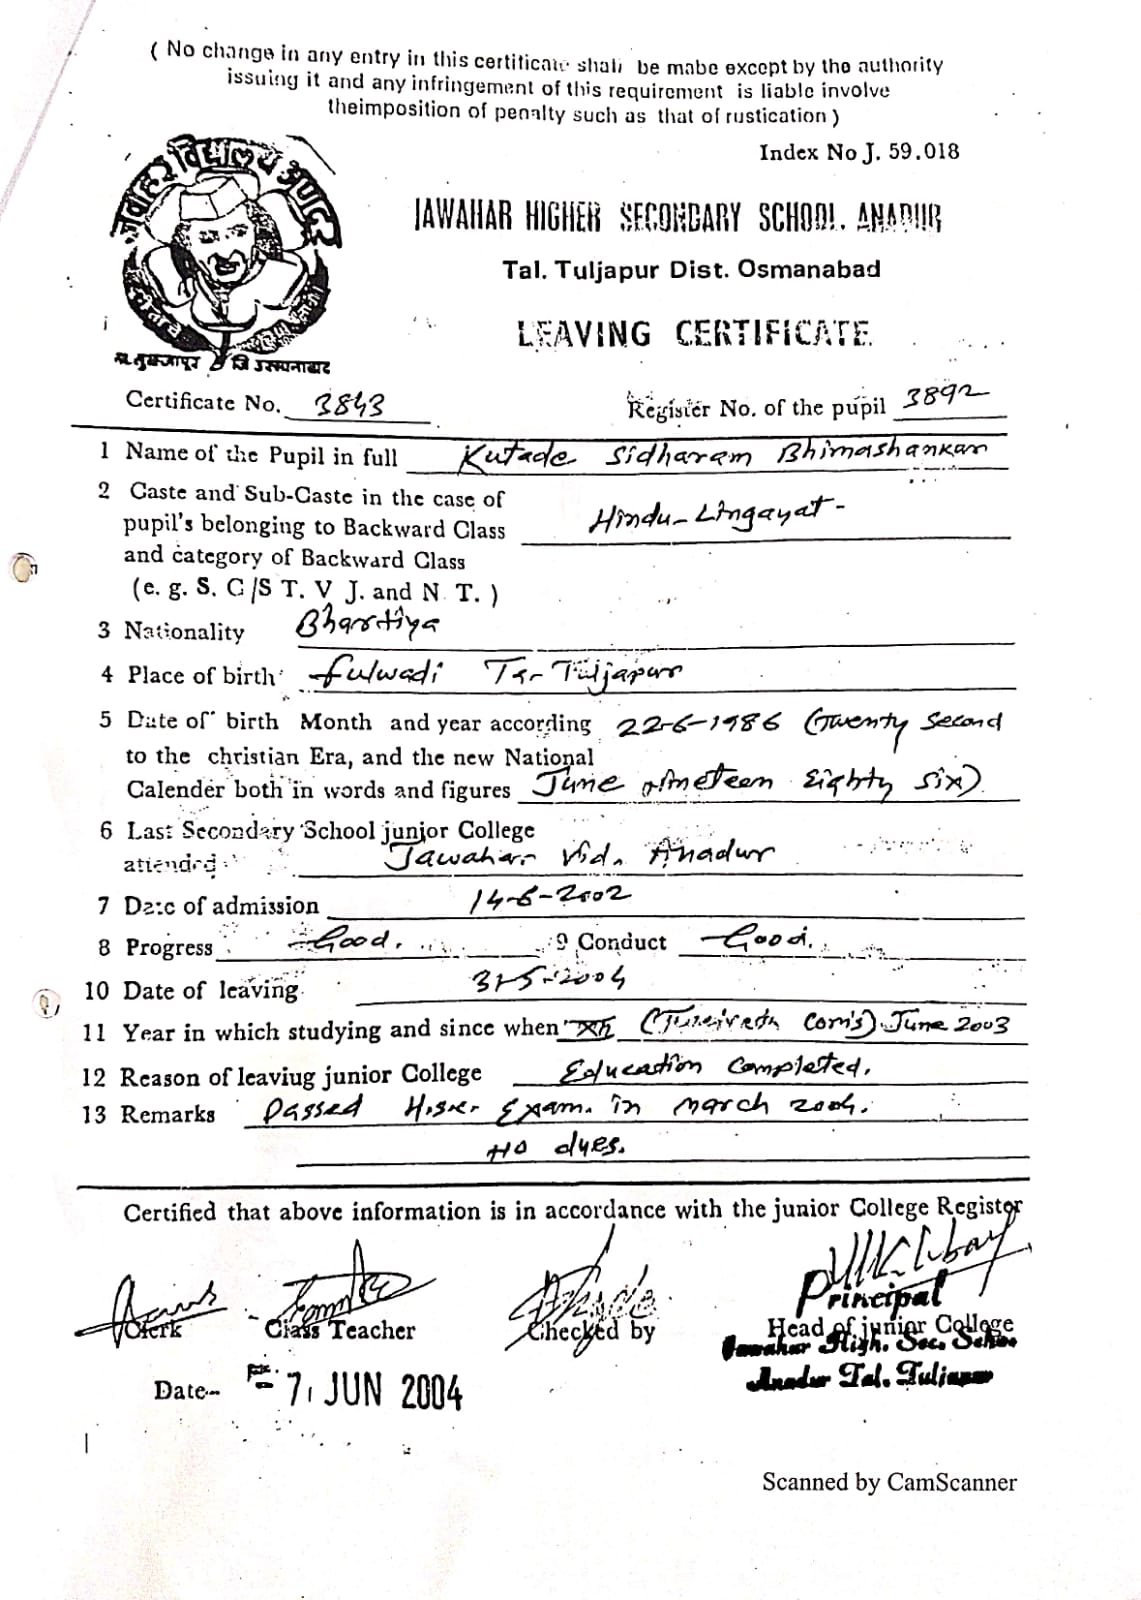 ( No change in any entry in this certificate shall be mabe except by the authority
issuing it and any infringement of this requirement is liable involve
theimposition of penalty such as that of rustication )
Index No J. 59.018
जवाहर विद्यालय अणदूर
ता. तुळजापूर जि उस्मानाबाद
JAWAHAR HIGHER SECONDARY SCHOOL, ANADUR
Tal. Tuljapur Dist. Osmanabad
LEAVING CERTIFICATE
Certificate No. 3843 Register No. of the pupil 3892
1 Name of the Pupil in full Kutade Sidharam Bhimashankar
2 Caste and Sub-Caste in the case of
pupil's belonging to Backward Class Hindu-Lingayat-
and category of Backward Class
(e. g. S. C/S T. V J. and N T. )
3 Nationality Bhartiya
4 Place of birth Fulwadi Ta- Tuljapur
5 Date of birth Month and year according 22-6-1986 (Twenty Second
to the christian Era, and the new National
Calender both in words and figures June nineteen Eighty Six)
6 Last Secondary School junior College
attended Jawahar Vid. Anadur
7 Date of admission 14-6-2002
8 Progress Good. 9 Conduct Good.
10 Date of leaving 31-5-2004
11 Year in which studying and since when XII Com's). June 2003
12 Reason of leaviug junior College Education Completed.
13 Remarks Passed Exam. in March 2004.
No dues.
Certified that above information is in accordance with the junior College Register
Principal
Clerk Class Teacher Checked by Head of junior College
Jawahar High. Sec. School
Anadur Tal. Tuljapur
Date-- 7 JUN 2004
Scanned by CamScanner